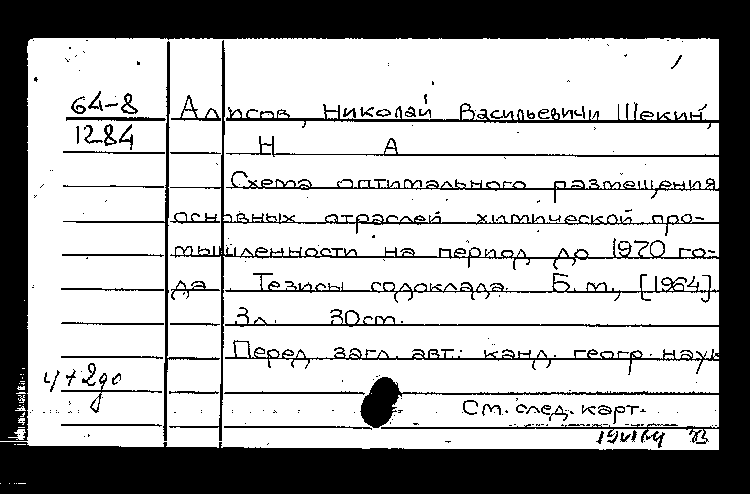 64-8
1284
Алисов, Николай Васильевичи Щекин,
Н А
Схема оптимального размещения
основных отраслей химической про-
мышленности на период до 1970 го-
да. Тезисы содоклада. Б.м., [1964]
3л. 30cm.
Перед загл. авт.: канд. геогр. наук
4+2до
См. след. карт.